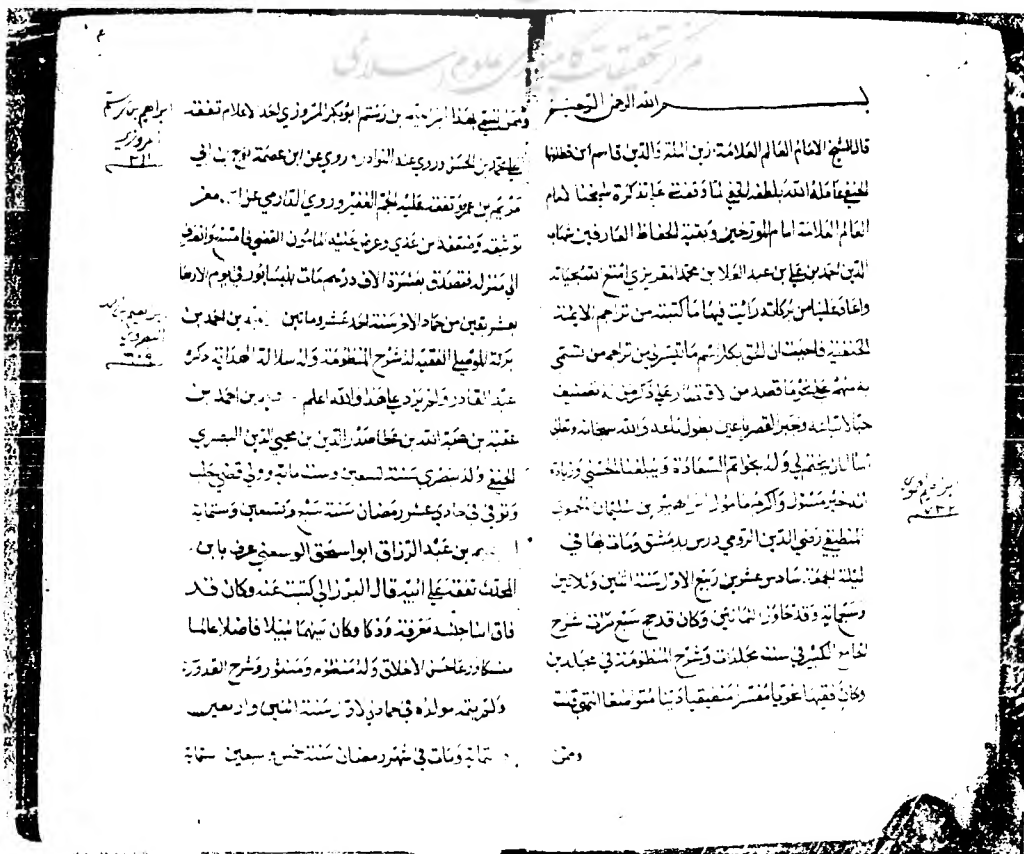 مركز تحقيقات كامپيوترى علوم اسلامى
بسم الله الرحمن الرحيم
قال الشيخ الامام العالم العلامة زين الملة والدين قاسم ابن قطلوبغا
الحنفي عامله الله بلطفه الخفي لما وقفت على تذكرة شيخنا الامام
العالم العلامة امام المورخين وبقية الحفاظ العارفين شهاب
الدين احمد بن علي بن عبد العلا بن محمد المقريزي امتع الله بحياته
واعاد علينا من بركاته رايت فيها ما كتبه من تراجم الائمة
الحنفية فاحببت ان الحق بكل اسم ما تيسر لي من تراجم من تسمى
به منهم على ما قصد من الاقتصار على ذكر من له تصنيف
والله سبحانه وتعالى
اسال ان يختم لي وله بخواتم السعادة ويبلغنا الحسنى وزيادة
انه خير مسؤل واكرم مامول ابرهيم بن سليمان الحموي
المنطقي رضي الدين الرومي درس بدمشق ومات بها في
ليلة الجمعة سادس عشرين ربيع الاول سنة اثنين وثلاثين
وسبعماية وقد جاوز الثمانين وكان قد حج سبع مرات شرح
الجامع الكبير في ستة مجلدات وشرح المنظومة في مجلدين
وكان فقيها نحويا مفسرا منطقيا دينا متواضعا انتهى
وممن
٧٣٢
٤
وممن تسمى بهذا ابراهيم بن رستم ابو بكر المروزي احد الاعلام تفقه
على محمد بن الحسن وروى عنه النوادر وروى عن ابن عصمة نوح بن ابي
مريم بن عمرو تفقه عليه الجم الغفير وروى الدارمي عن
توثيقه وضعفه من عدي وعرض عليه المامون القضا فامتنع وانصرف
الى منزله فتصدق بعشرة الاف درهم مات بنيسابور في يوم الاربعا
لعشر بقين من جماد الاخر سنة احد عشر ومائتين بن احمد بن
بركة الموصلي الفقيه له شرح المنظومة وله سلالة الهداية ذكره
عبد القادر ولم يزد على هذا والله اعلم بن احمد بن
عقبة بن هبة الله بن عطا صدر الدين بن محيي الدين البصري
الحنفي ولد ببصرى سنة تسعين وست ماية وولي قضى حلب
وتوفي في حادي عشر رمضان سنة سبع وتسعين وستماية
بن عبد الرزاق ابو اسحق الرسعني عرف بابن
المحدث تفقه على ابيه قال البرزالي كتبت عنه وكان قد
فاق ابنا جنسه معرفة وذكا وكان نبيها نبيلا فاضلا عالما
حسن الاخلاق وله منظوم ومنثور وشرح القدوري
ولم يتمه مولده في جمادى الاول سنة اثنين واربعين
ستماية ومات في شهر رمضان سنة خمس وسبعين ستماية
ابراهيم بن رستم
المروزي
٢١١